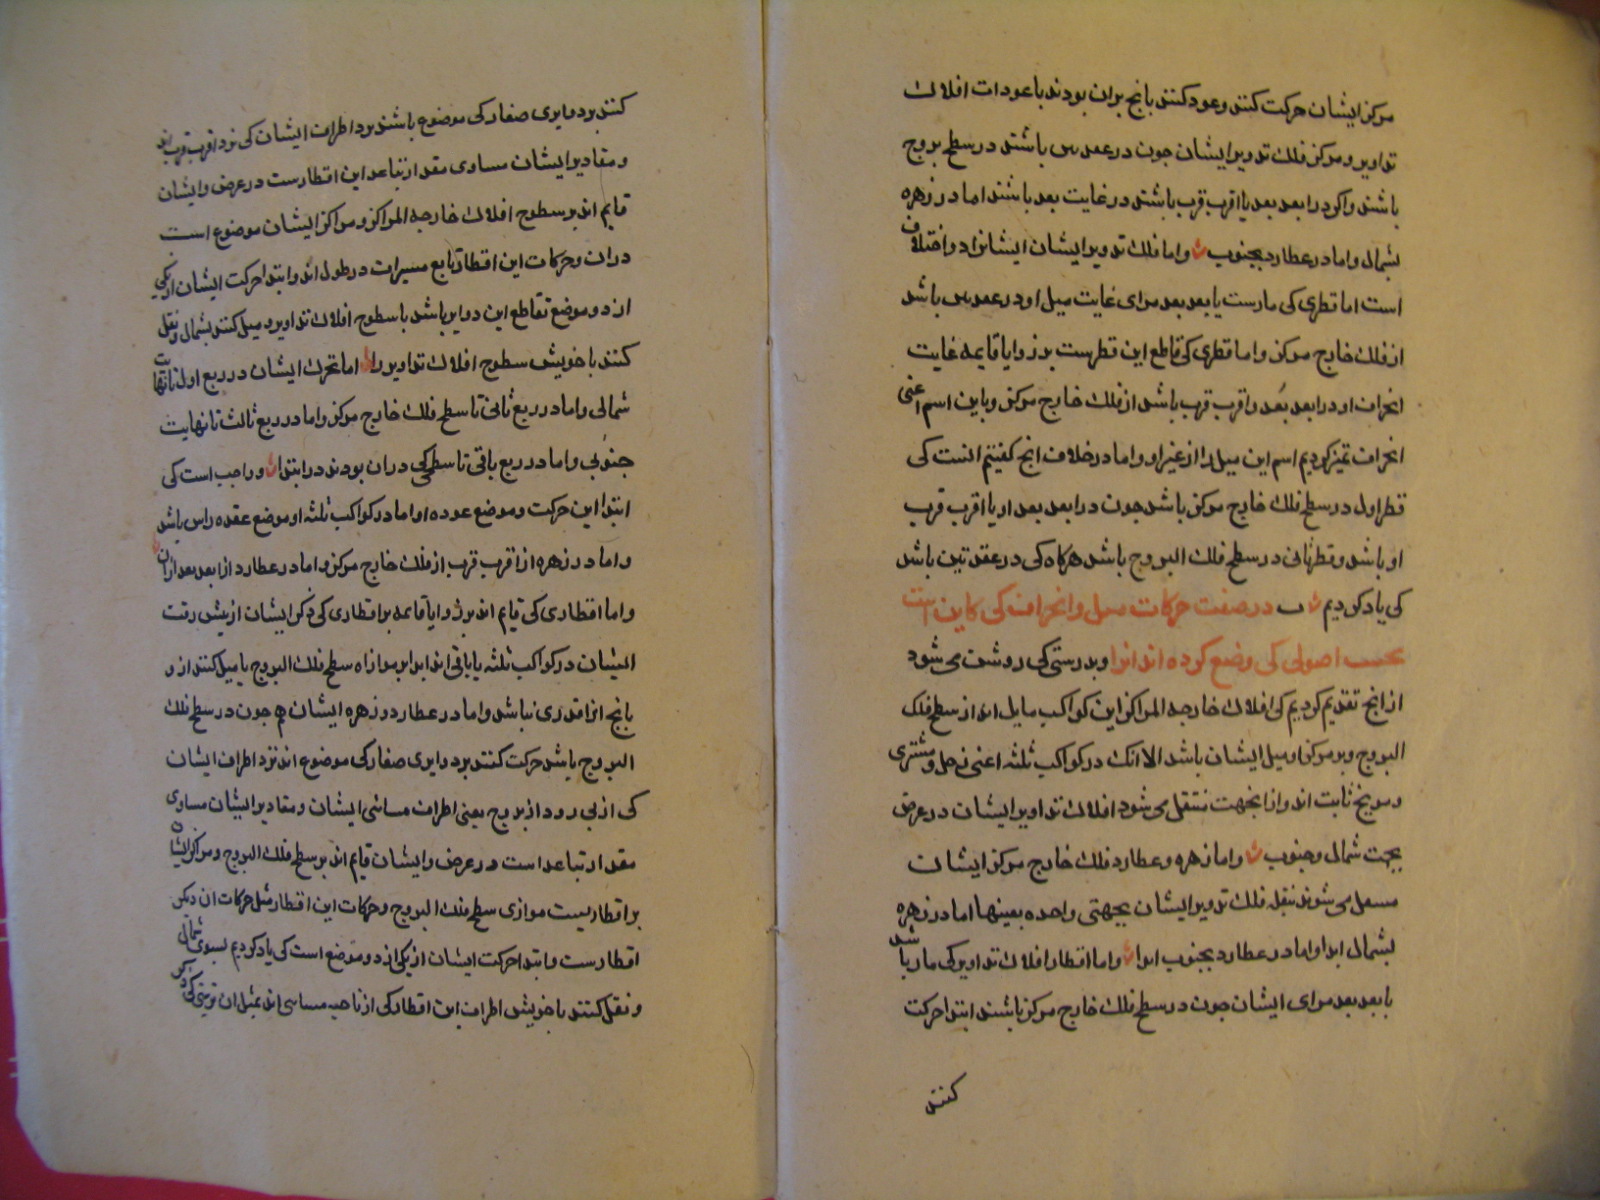 مرکز ایشان حرکت کنند و عود کنند بانچ بران بودند با عودات افلاك
تداویر و مرکز فلك تدویر ایشان جون در عقدس باشند در سطح بروج
باشند واکر در ابعد بعد یا اقرب قرب باشند در غایت بعد باشند اما در زهره
بشمال و اما در عطارد بجنوب واما فلك تدویر ایشان ایشانرا دو اختلاف
است اما قطری کی مارست یا بعد بعد مرای غایت میل او در عقدس باشد
از فلك خارج مرکز واما قطری کی قاطع این قطرست بر زوایا قایمه غایت
انحراف او در ابعد بُعد و اقرب قرب باشد از فلك خارج مرکز و باین اسم اعنی
انحراف تمیز کردیم اسم این میل را از غیر او و اما در خلاف انچ کفتیم انست کی
قطر اول در سطح فلك خارج مرکز باشد جون در ابعد بعد او یا اقرب قرب
او باشد و قطر ثانی در سطح فلك البروج باشد هرکاه کی در عقدتین باشد
کی یاد کردیم ب در صفت حرکات میل و انحراف کی کاین است
بحسب اصولی کی وضع کرده اند انرا و بدرستی کی روشن می شود
از انچ تقدیم کردیم کی افلاك خارجه المراکز این کواکب مایل اند از سطح فلك
البروج و بر مرکز او میل ایشان باشد الا انك در کواکب ثلثه اعنی زحل و مشتری
و مریخ ثابت اند و از انجهت منتقل می شود افلاك تداویر ایشان در عرض
بجهت شمال و جنوب و اما زهره و عطارد فلك خارج مرکز ایشان
می شوند بنقله فلك تدویر ایشان بجهتی واحده بعینها اما در زهره
بشمال ابدا و اما در عطارد بجنوب ابدا و اما اقطار افلاك تداویر کی مار باشد
با بعد بعد مرای ایشان جون در سطح فلك خارج مرکز باشند ابتدا حرکت
کنند
کنند بر دوایری صغار کی موضوع باشند بر اطراف ایشان کی نزد اقرب قرب اند
و مقادیر ایشان مساوی مقدار تباعد این اقطارست در عرض و ایشان
قایم اند بر سطوح افلاك خارجه المراکز و مراکز ایشان موضوع است
دران و حرکات این اقطار تابع مسیرات در طول اند و ابتدا حرکت ایشان از یکی
از دو موضع تقاطع این دوایر باشد با سطوح افلاك تداویر و میل کنند بشمال و نقل
کنند با خویش سطوح افلاك تداویر را اما تحرك ایشان در ربع اول تا نهایت
شمالی و اما در ربع ثانی تا سطح فلك خارج مرکز و اما در ربع ثالث تا نهایت
جنوبی و اما در ربع باقی تا سطحی کی دران بودند در ابتدا و واجب است کی
ابتدا این حرکت و موضع عوده او اما در کواکب ثلثه او موضع عقده راس باشد
و اما در زهره از اقرب قرب از فلك خارج مرکز و اما در عطارد از ابعد بعد ازان
و اما اقطاری کی قایم اند بر زوایا قایمه بر اقطاری کی ذکر ایشان از پیش رفت
ایشان در کواکب ثلثه یا باقی اند ابدا بر موازاه سطح فلك البروج یا میل کنند ازو
بانچ انرا قدری نباشد و اما در عطارد و زهره ایشان هم جون در سطح فلك
البروج باشد حرکت کنند بر دوایری صغار کی موضوع اند نزد اطراف ایشان
کی از پی رود از بروج یعنی اطراف مسائی ایشان و مقادیر ایشان مساوی
مقدار تباعد است در عرض و ایشان قایم اند بر سطح فلك البروج و مراکز ایشان
بر اقطاریست موازی سطح فلك البروج و حرکات این اقطار مثل حرکات ان دیکر
اقطارست و ابتدا حرکت ایشان از یکی از دو موضع است کی یاد کردیم بسوی شمال
و نقل کنند با خویش اطراف این اقطار کی از ناحیه مسائی اند بمثل ان ترتیبی کی ذکر